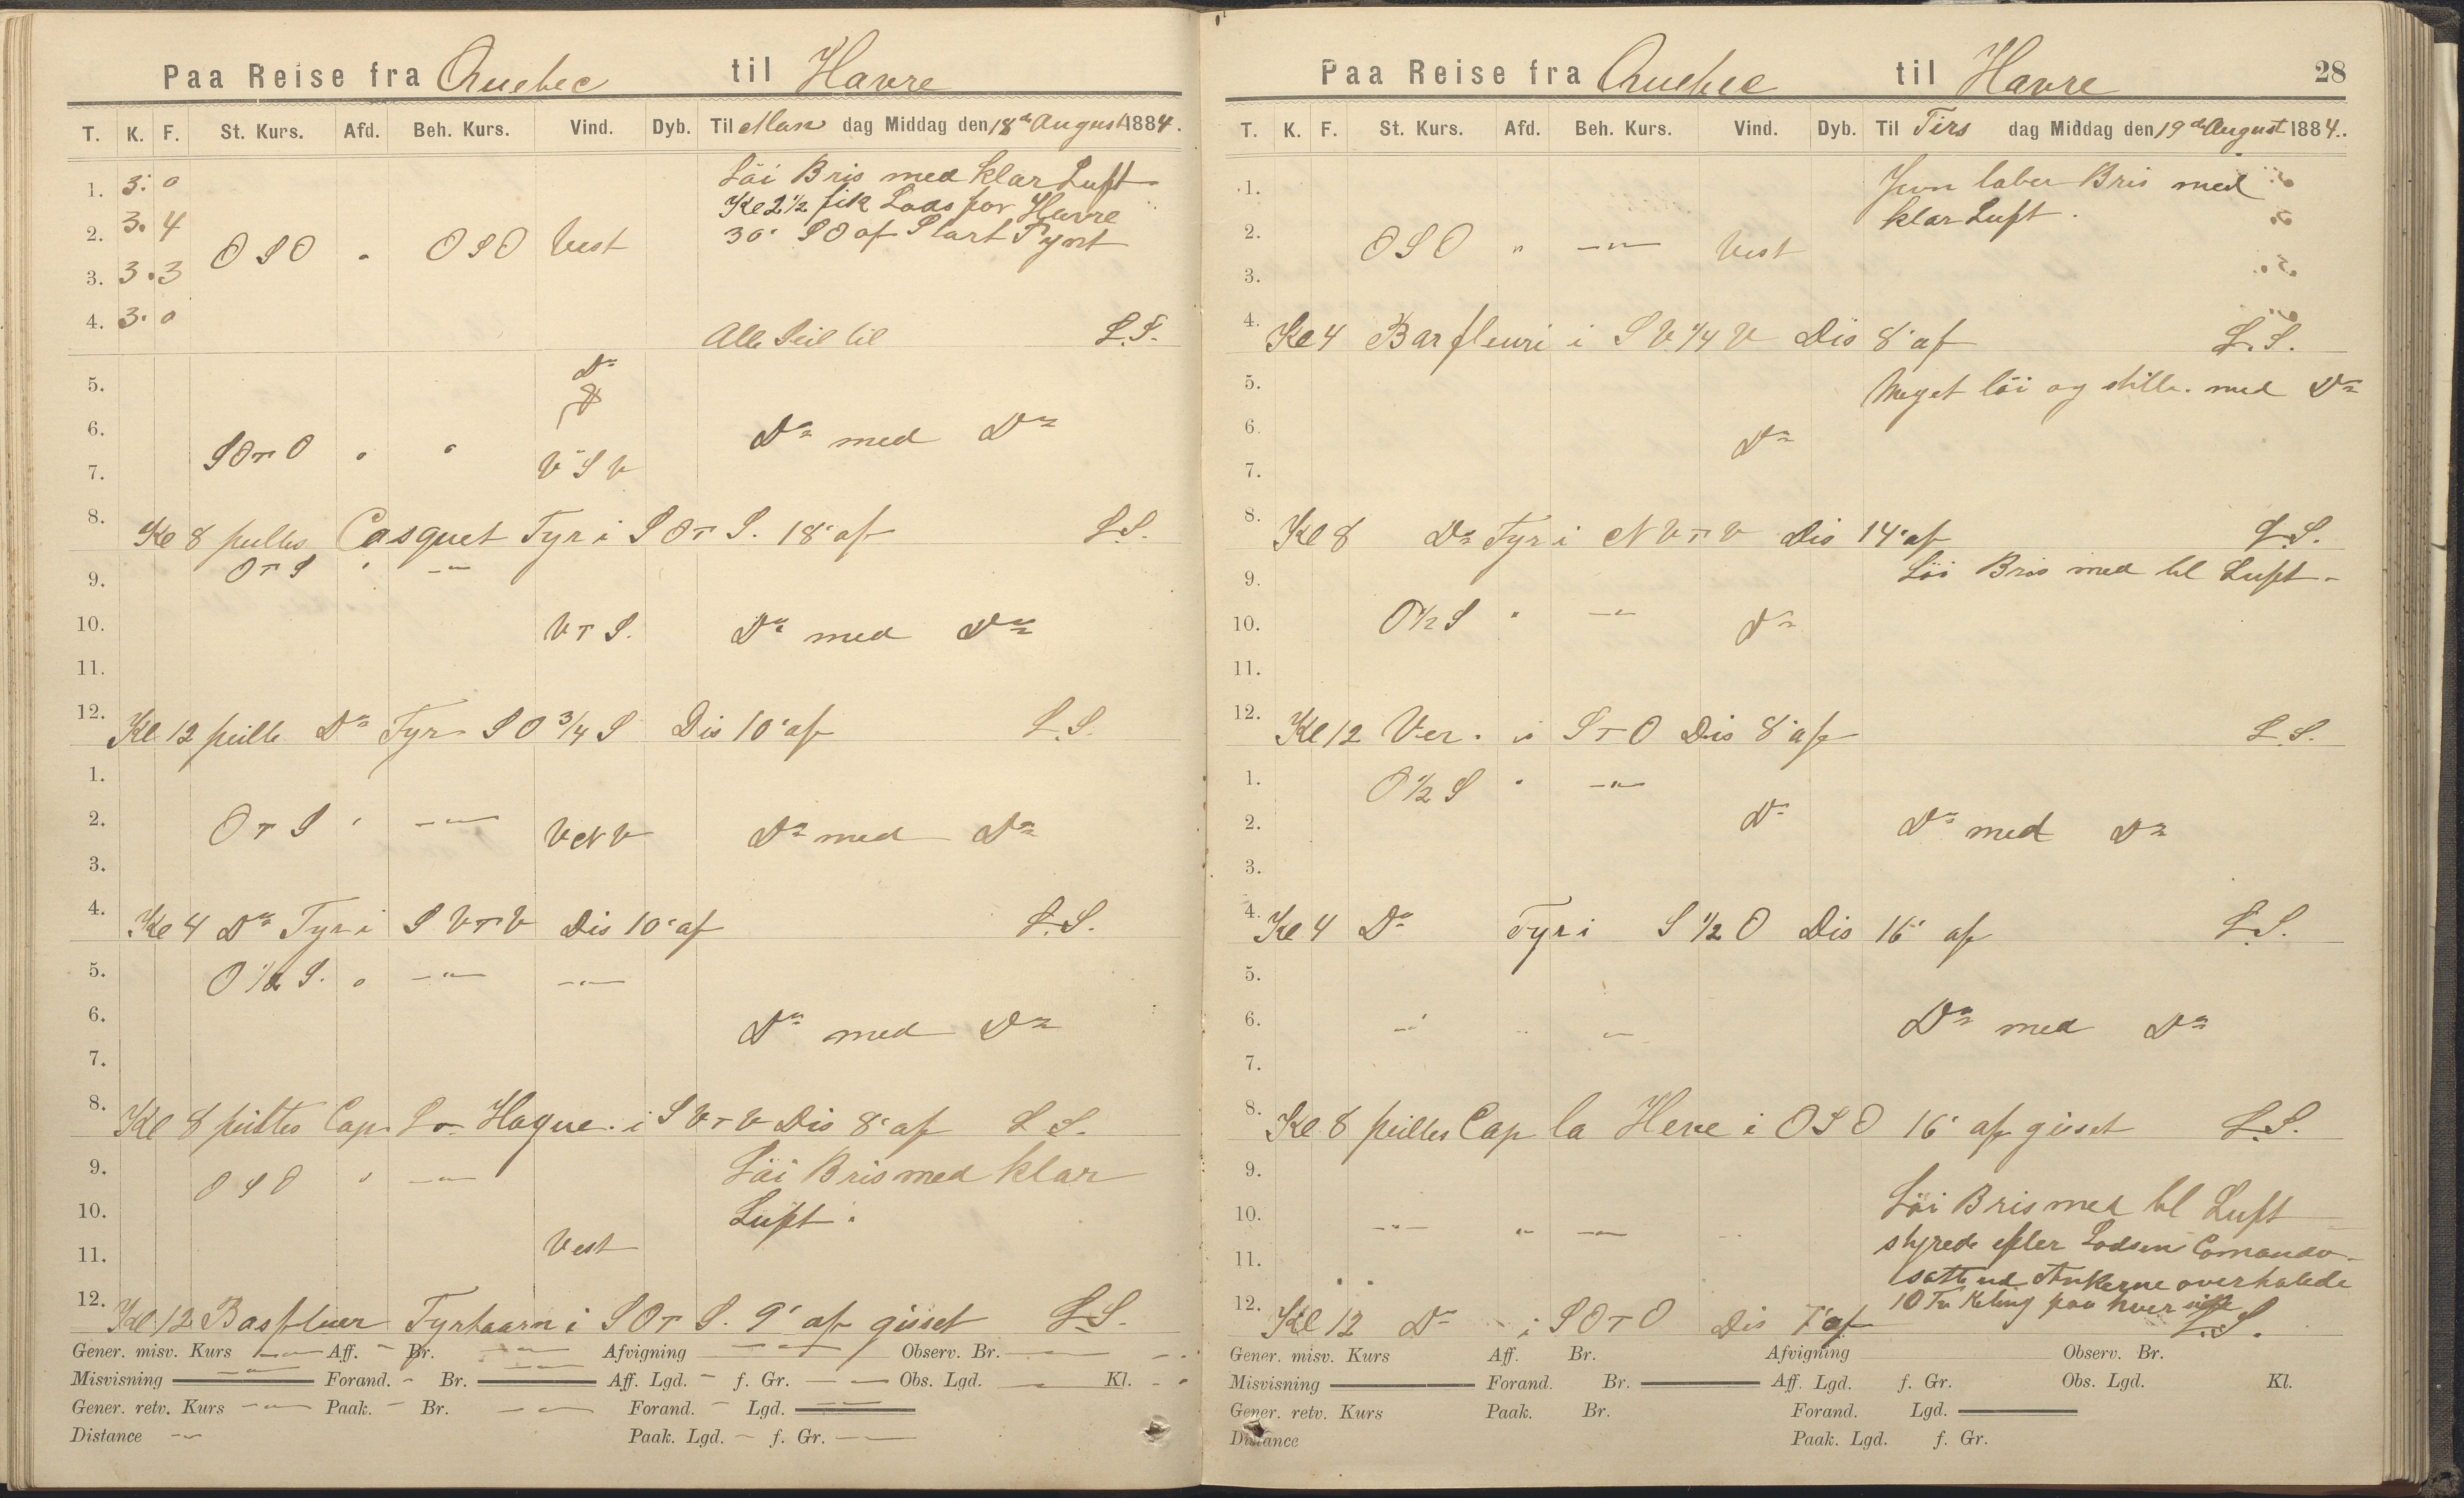 Paa Reise fra Quebec til Havre
T. K. F. St. Kurs. Afd. Beh. Kurs. Vind. Dyb. Til Man dag Middag den 18de August 1884.
1. 3. 0 Löi Bris med klar Luft
Kl 2 1/2 fik Lods for Havre
2. 3. 4 OSO " OSO Vest 30' SO af Start Pynt
3. 3. 3
4. 3. 0 Alle Seil til L.S.
5. Do
6. Do med Do
7. SOTO " " VSV
8. Kl 8 peiltes Casquet Fyr i SOTS. 18' af L.S.
9. OTS " —"—
10. VTS. Do med Do
11.
12. Kl 12 peilte Do Fyr SO 3/4 S Dis 10' af L.S.
1.
2. OTS " —"— VNV Do med Do
3.
4. Kl 4 Do Fyr i SVTV Dis 10' af L.S.
5. O 1/2 S. " —"— —"—
6. Do med Do
7.
8. Kl 8 peiltes Cap La Hague i SVTV Dis 8' af L.S.
9. OSO " —"— Löi Bris med klar
10. Luft.
11. Vest
12. Kl 12 Basfluer Fyrtaarn i SOTS. 9' af gisset L.S.
Gener. misv. Kurs —"— Aff. - Br. —"— Afvigning —"— Observ. Br. —
Misvisning —"— Forand. - Br. —"— Aff. Lgd. - f. Gr. —"— Obs. Lgd. — Kl. - "
Gener. retv. Kurs —"— Paak. - Br. —"— Forand. - Lgd. —"—
Distance —"— Paak. Lgd. - f. Gr. —"—
Paa Reise fra Quebec til Havre 28
T. K. F. St. Kurs. Afd. Beh. Kurs. Vind. Dyb. Til Tirs dag Middag den 19de August 1884.
1. Jevn laber Bris med
2. klar Luft.
OSO " —"— Vest
3.
4. Kl 4 Barfleuri i SV 1/4 V Dis 8' af L.S.
5. Meget löi og stille med Do
6. Do
7.
8. Kl 8 Do Fyr i NVTV Dis 14' af L.S.
9. Löi Bris med kl Luft
10. O 1/2 S " —"— Do
11.
12. Kl 12 Ver. i STO Dis 8' af L.S.
1. O 1/2 S " —"—
2. Do Do med Do
3.
4. Kl 4 Do Fyr i S 1/2 O Dis 16' af L.S.
5.
6. —"— " —"— Do med Do
7.
8. Kl 8 peiltes Cap la Heve i OSO 16' af gisset L.S.
9.
10. —"— " —"— Löi Bris med kl Luft
11. styrede efter Lodsens Comando
satte ud Ankerne overhalede
12. 10 Fv Keting paa hver
Kl 12 Do i SOTO Dis 7' af L.S.
Gener. misv. Kurs Aff. Br. Afvigning Observ. Br.
Misvisning Forand. Br. Aff. Lgd. f. Gr. Obs. Lgd. Kl.
Gener. retv. Kurs Paak. Br. Forand. Lgd.
Distance Paak. Lgd. f. Gr.